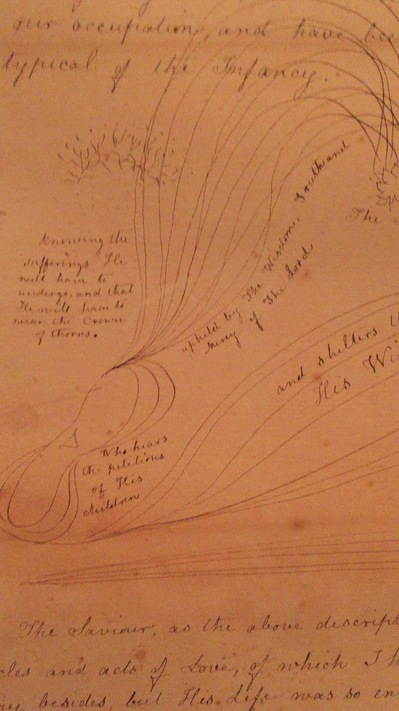 our occupation, and have bee
typical of the Infancy.
Knowing the
sufferings He
will have to
undergo, and that
He will have to
wear the Crown
of thorns.
upheld by The Wisdom, Truth and
Mercy of The Lord.
The
and shelters
His Wi
Who hears
the petitions
of His
children
The Saviour, as the above descript
cles and acts of Love, of which I h
besides, but His Life was so en